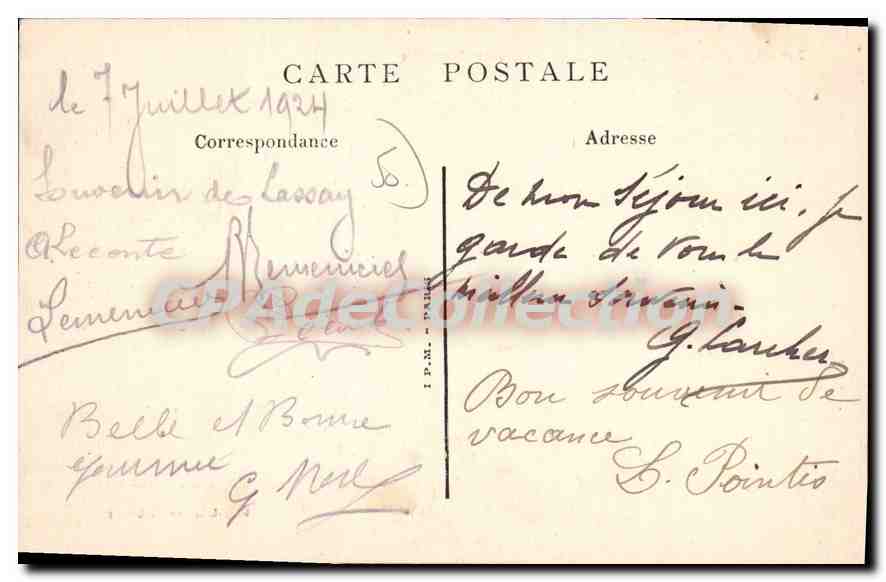 CARTE POSTALE
le 7 Juillet 1924
Correspondance
Souvenir de Lassay
50.
A Leconte
Belle et Bonne
journée
G
I P.M. – PARIS
CPAdeCollection
Adresse
De mon Séjour ici, je
garde de vous le
meilleur Souvenir.
G. Larcher
Bon souvenir de
vacance
L. Pointis